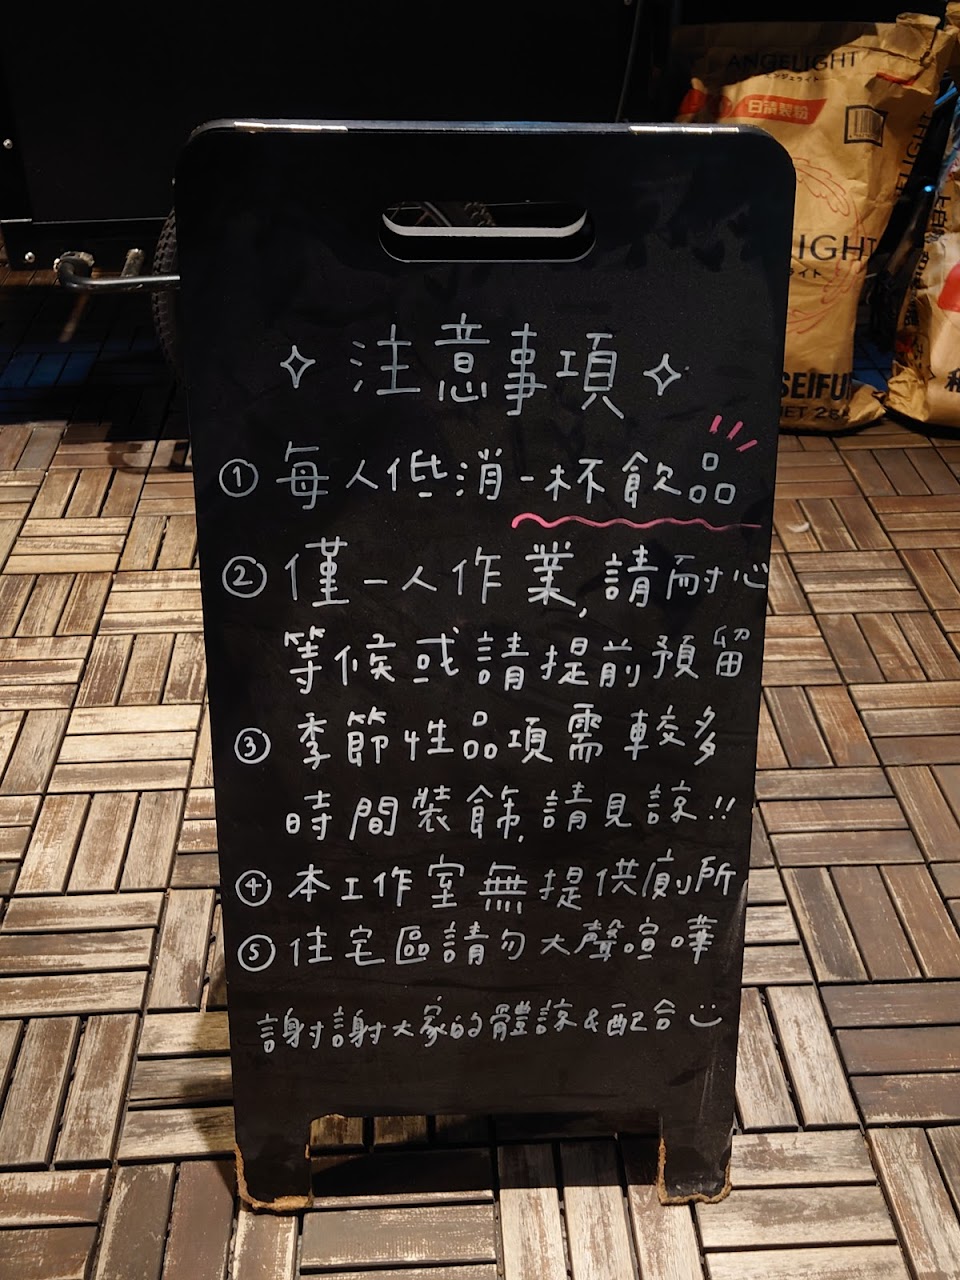 ANGELIGHT
エンジェライト
日清製粉
ANGELIGHT
IGHT
ライト
SEIFU
NET 25
✧ 注意事項 ✧
① 每人低消一杯飲品
② 僅一人作業,請耐心
等候或請提前預留
③ 季節性品項需較多
時間裝飾,請見諒!!
④ 本工作室無提供廁所
⑤ 住宅區請勿大聲喧嘩
謝謝大家的體諒&配合